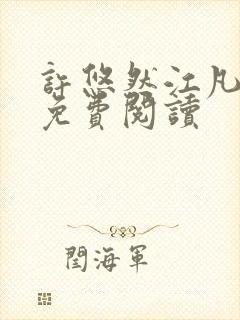 許悠然江凡
免費閱讀
閆海軍